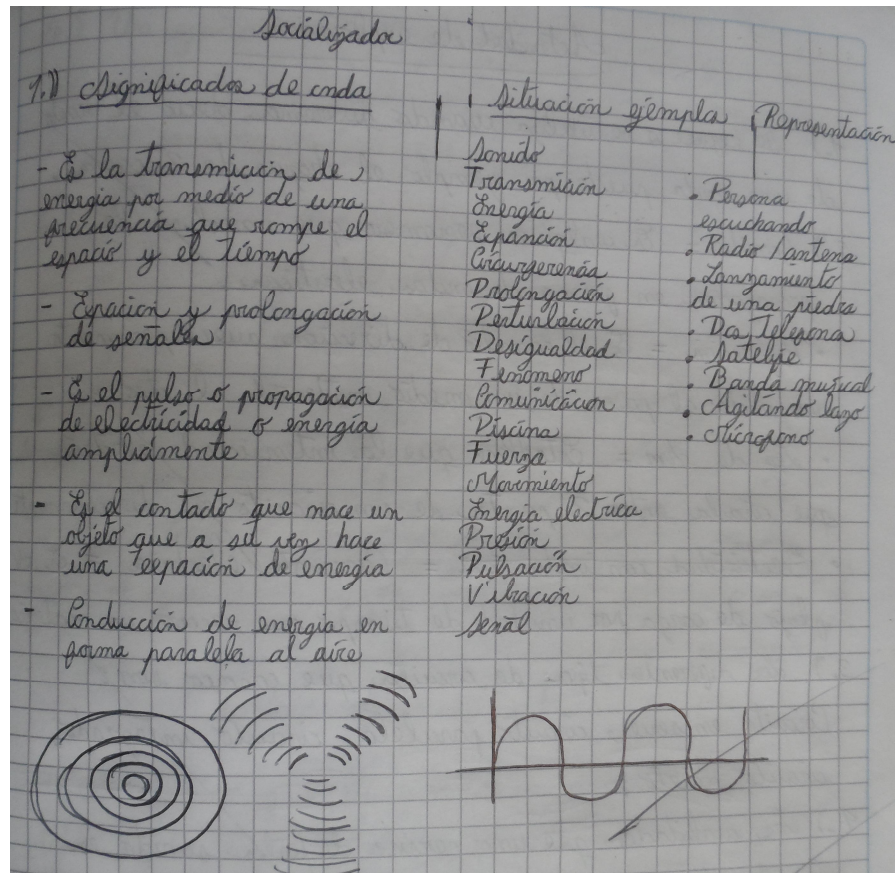 Socializador
1.)) Significados de onda
- Es la transmición de
energía por medio de una
frecuencia que rompe el
espacio y el tiempo
- Epacion y prolongación
de señales
- Es el pulso o propagación
de electricidad o energía
ampliamente
- Es el contacto que hace un
objeto que a su vez hace
una eepación de energía
- Conducción de energia en
forma paralela al aire
Situación ejemplo
Sonido
Transmisión
Energía
Expanción
Prolongación
Perturbación
Desigualdad
Fenomeno
Comunicación
Piscina
Fuerza
Movimiento
Energia electrica
Presión
Pulsación
Vibración
Señal
Representación
• Persona
escuchando
• Radio / antena
• Lanzamiento
de una piedra
• Dos Telefono
• Satelite
• Banda musical
• Agitando lazo
• Microfono